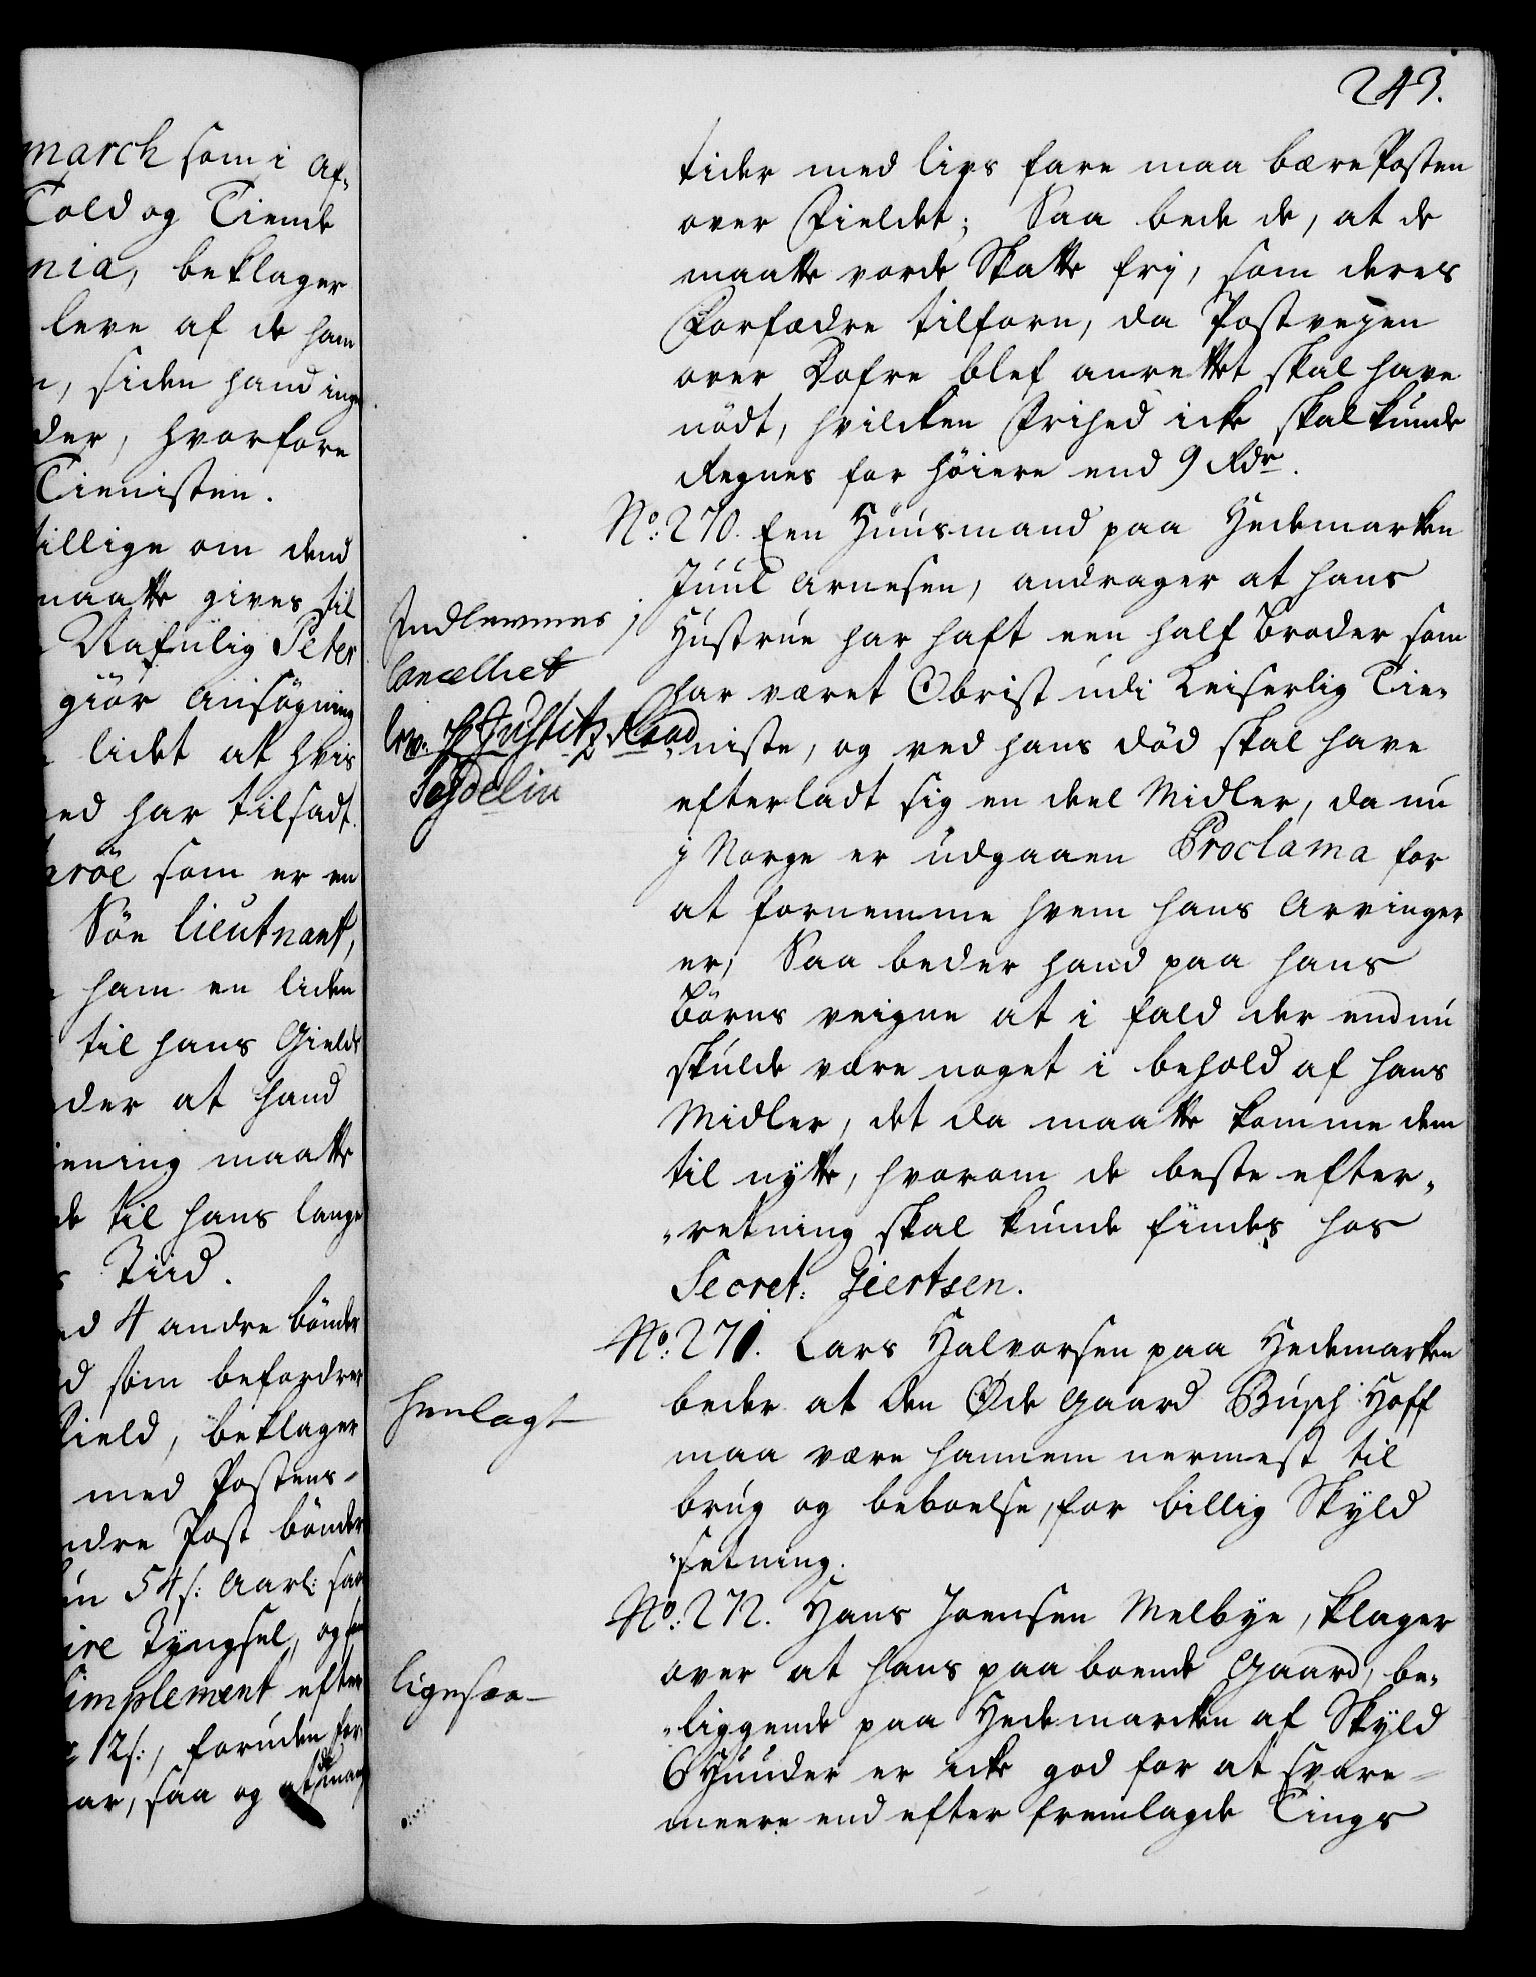 march som i Af-
Told og Tiende
nia, beklager
leve af de ham
n, siden hand ingen
der, hvorfore
Tienisten.
tillige om dend
maatte gives til
Nafnlig Peter
giör Ansögning
lidet at hvis
ed har tilsadt.
aröe som er en
Sön Lieutnant,
ham en liden
til hans Gields
der at hand
ening maatte
de til hans lange
s Tiid.
ed 4 andre bönder
d som befordrer
Field, beklager
med Postens-
ndre Post bönder
un 54 s: Aarl: saa
ire Tyngsel, og
Simplement efter
12 s:, foruden for
ar, saa og
243.
tider med lifs fare maa bære Posten
over Fieldet; Saa bede de, at de
maatte vorde Skatte frj, som deres
Forfædre tilforn, da Postvejen
over Dofre blef anrettet skal have
nödt, hvilcken Frihed icke skal kunde
Regnes for höiere end 9 Rdr.
No: 270. Een Huusmand paa Hedemarken
Juul Arnesen, andrager at hans
Hustrue har haft een half Broder som
har været Obrist udi Keiserlig Tie-
-niste, og ved hans död skal have
efterladt sig en deel Midler, da nu
j Norge er udgaaen Proclama for
at fornemme hvem hans Arvinger
er; Saa beder hand paa hans
Börns veigne at i fald der endnu
skulde være noget i behold af hans
Midler, det da maatte komme dem
til nytte, hvorom de beste efter-
-retning skal kunde findes hos
Secret: Giertsen.
Indlemmes j
Cancelliet
lev. H Justitz Raad
Schdelin
No: 271. Lars Halvorsen paa Hedemarken
beder at den Øde Gaard Busch Hoff
maa være hannem nermest til
brug og beboelse, for billig Skyld
-setning.
henlagt
No: 272. Hans Joensen Melbye, klager
over at hans paa boende Gaard, be-
-liggende paa Hedemarcken af Skyld
6 Hunder er icke god for at svare
meere end efter fremlagde Tings
ligesaa